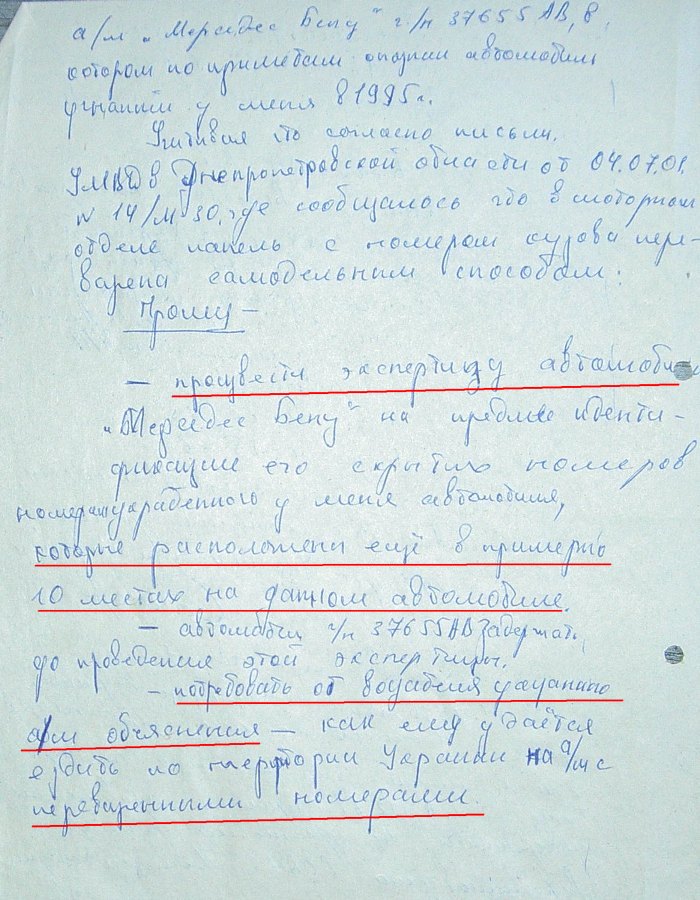 а/м „Мерседес Бенц" г/н 37655 АВ, в
котором по приметам опознан автомобиль
угнанный у меня в 1995г.
Учитывая что согласно письму
УМВД в Днепропетровской области от 04.07.01
N 14/М-30, где сообщалось что в моторном
отделе панель с номером кузова пере-
варена самодельным способом:
Прошу –
– произвести экспертизу автомоби
„Мерседес Бенц" на предмет иденти-
фикации его скрытых номеров
номерам украденного у меня автомобиля,
которые расположены ещё в примерно
10 местах на данном автомобиле.
– автомобиль г/н 37655АВ задержать
до проведения этой экспертизы.
– потребовать от водителя данного
а/м объяснения – как ему удаётся
ездить по территории Украины на а/м с
переваренными номерами.